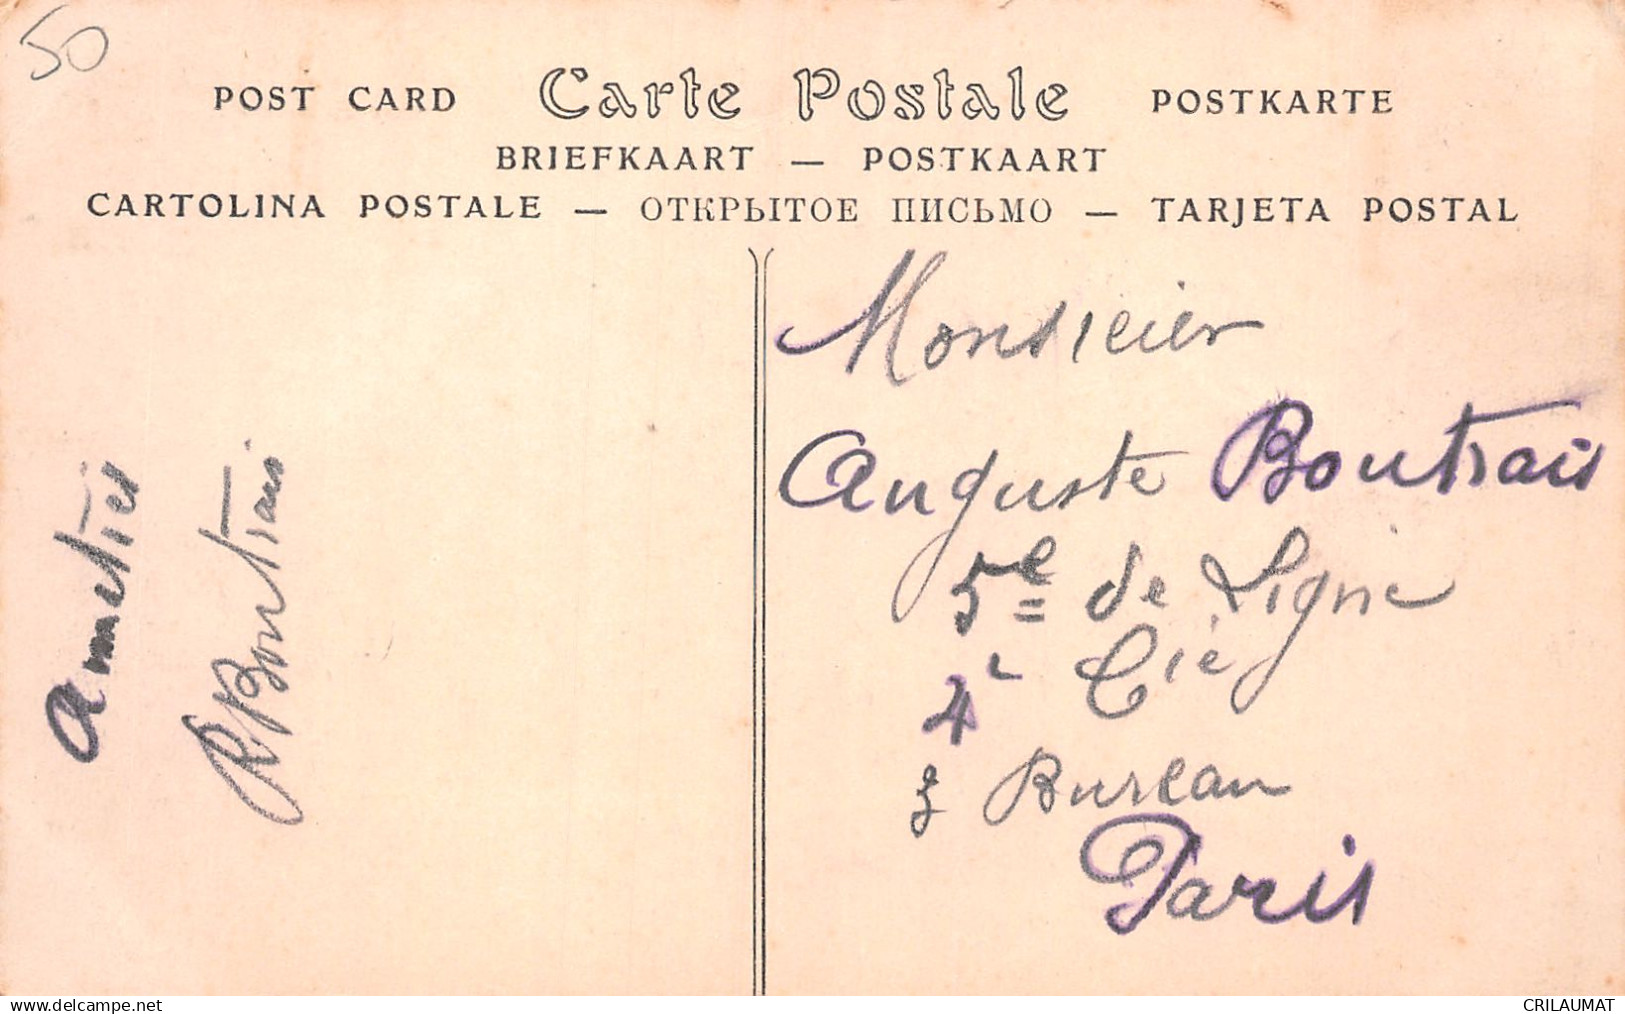 50
POST CARD Carte Postale POSTKARTE
BRIEFKAART — POSTKAART
CARTOLINA POSTALE — ОТКРЫТОЕ ПИСЬМО — TARJETA POSTAL
amitiés
R. Boutrais
Monsieur
Auguste Boutrais
5e de Ligne
4e Cie
Bureau
Paris
www.delcampe.net
CRILAUMAT